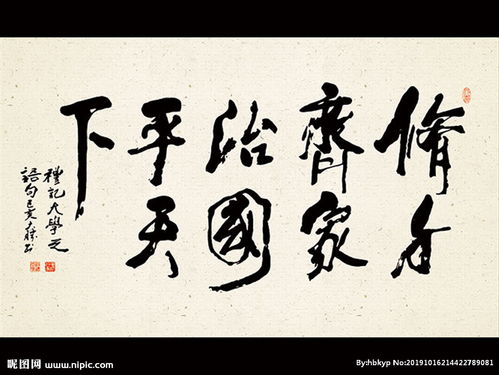 脩身
齊家
治國
平天
下
禮記大學之
語句己亥
昵图网 www.nipic.com
By:hbkyp No:20191016214422789081